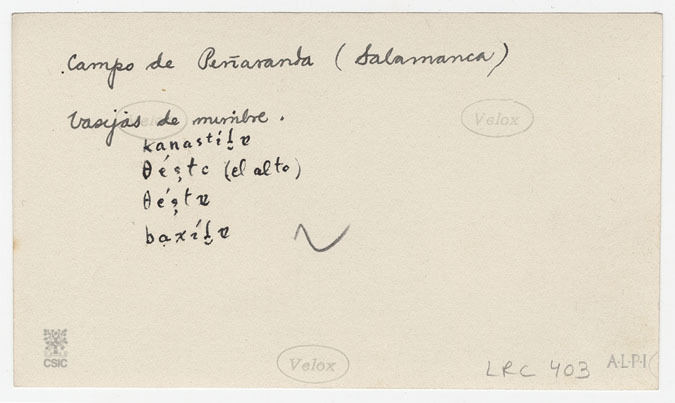 Campo de Peñaranda (Salamanca)
Vasijas de mimbre.
kanastíḽɐ
θéṣtɔ (el alto)
θéṣtɐ
bạxíḽɐ
Velox
Velox
Velox
CSIC
LRC 403
A·L·P·I